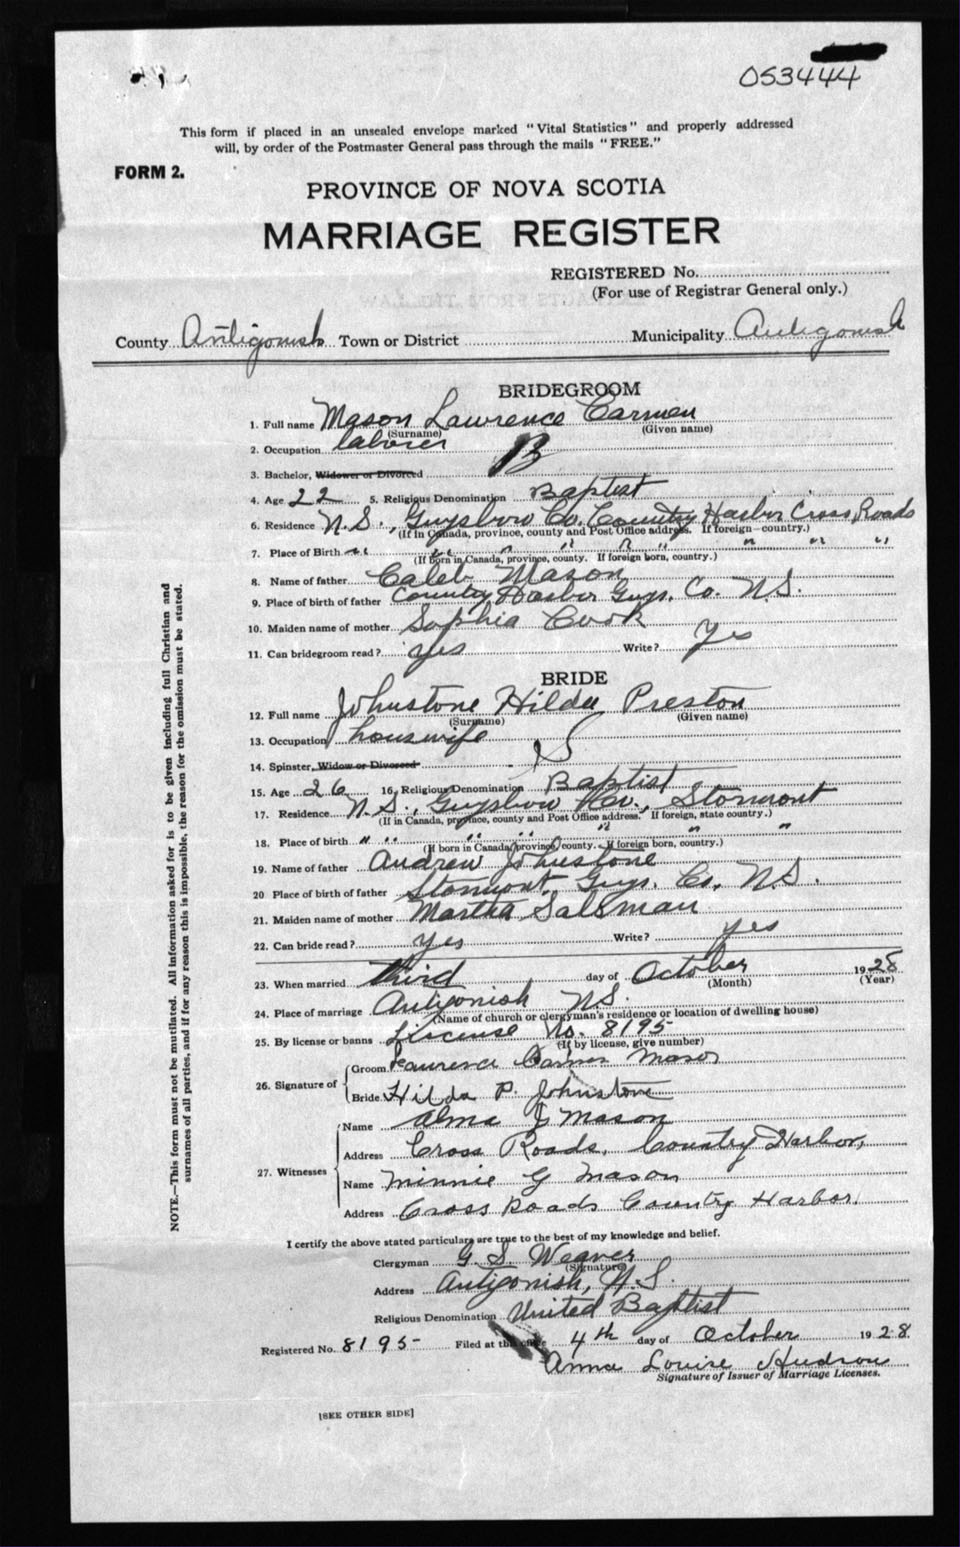 053444
This form if placed in an unsealed envelope marked "Vital Statistics" and properly addressed
will, by order of the Postmaster General pass through the mails "FREE."
FORM 2.
PROVINCE OF NOVA SCOTIA
MARRIAGE REGISTER
REGISTERED No.
(For use of Registrar General only.)
County Antigonish Town or District Municipality Antigonish
BRIDEGROOM
1. Full name Mason Lawrence Carmen
(Surname) (Given name)
2. Occupation laborer
3. Bachelor, Widower or Divorced B
4. Age 22 5. Religious Denomination Baptist
6. Residence N.S., Guysboro Co. Country Harbor Cross Roads
(If in Canada, province, county and Post Office address. If foreign country.)
7. Place of Birth " " " " " " " "
(If born in Canada, province, county. If foreign born, country.)
8. Name of father Caleb Mason
9. Place of birth of father Country Harbor Guys. Co. N.S.
10. Maiden name of mother Sophia Cook
11. Can bridegroom read? yes Write? Yes
BRIDE
12. Full name Johnstone Hilda Preston
(Surname) (Given name)
13. Occupation housewife
14. Spinster, Widow or Divorced S
15. Age 26 16. Religious Denomination Baptist
17. Residence N.S., Guysboro Co., Stormont
(If in Canada, province, county and Post Office address. If foreign, state country.)
18. Place of birth " " " " " " "
(If born in Canada, province, county. If foreign born, country.)
19. Name of father Andrew Johnstone
20 Place of birth of father Stormont, Guys. Co. N.S.
21. Maiden name of mother Martha Salsman
22. Can bride read? yes Write? yes
23. When married third day of October 1928
(Month) (Year)
24. Place of marriage Antigonish N.S.
(Name of church or clergyman's residence or location of dwelling house)
25. By license or banns License No. 8195
(If by license, give number)
26. Signature of Groom Lawrence Carmen Mason
Bride. Hilda P. Johnstone
27. Witnesses Name Alma J Mason
Address Cross Roads, Country Harbor,
Name Minnie G Mason
Address Cross Roads Country Harbor.
I certify the above stated particulars are true to the best of my knowledge and belief.
Clergyman G. S. Weaver
(Signature)
Address Antigonish, N.S.
Religious Denomination United Baptist
Registered No. 8195 Filed at this office 4th day of October 1928.
Anna Louise Hudson
Signature of Issuer of Marriage Licenses.
[SEE OTHER SIDE]
NOTE.—This form must not be mutilated. All information asked for is to be given including full Christian and
surnames of all parties, and if for any reason this is impossible, the reason for the omission must be stated.